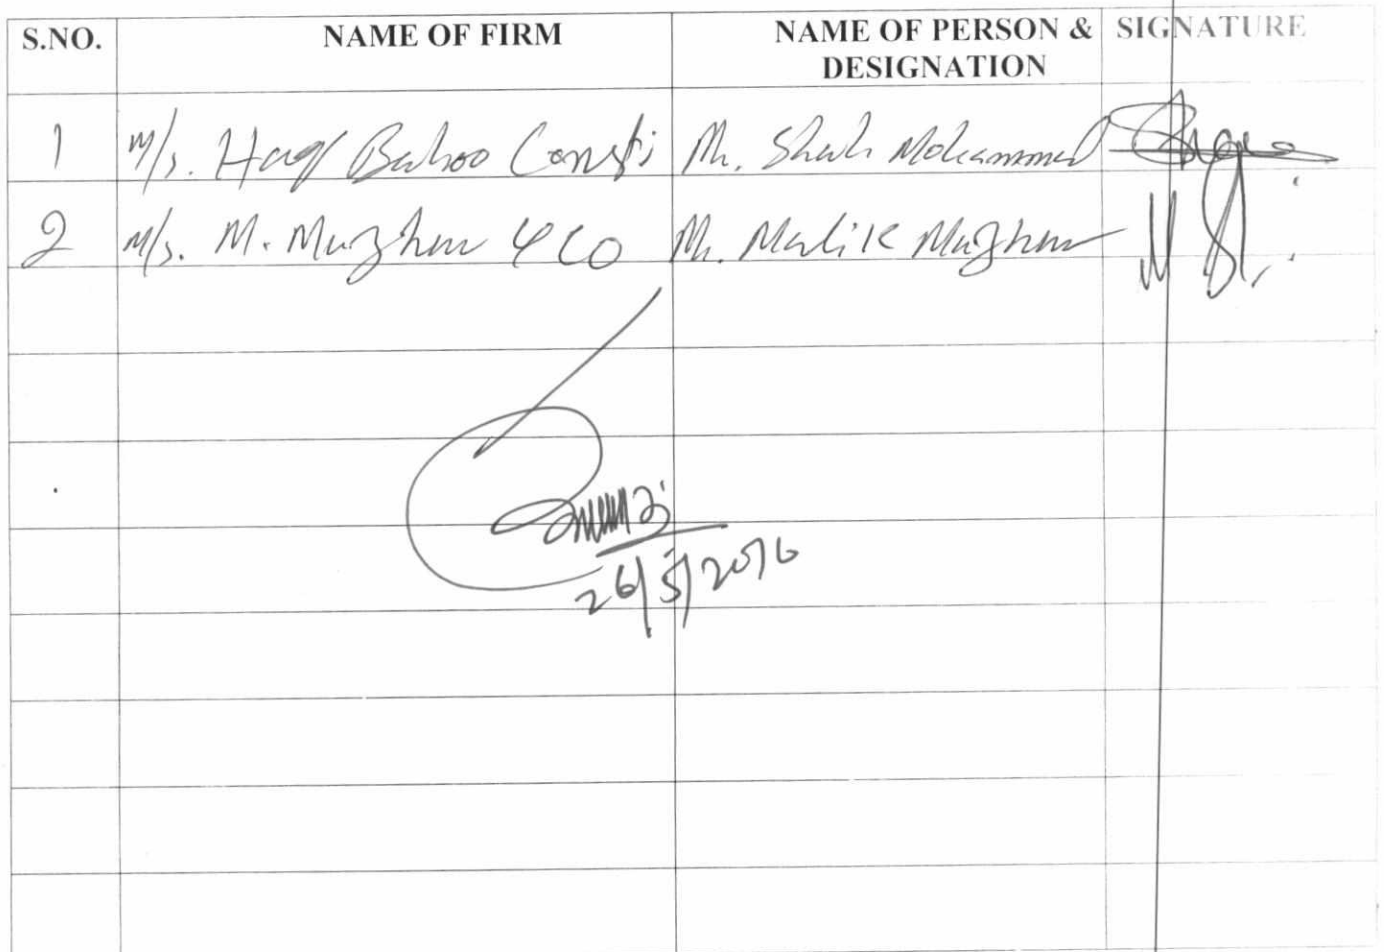 S.NO. NAME OF FIRM NAME OF PERSON & DESIGNATION SIGNATURE
1 M/s. Haq Bahoo Const: Mr. Shah Mohammad
2 M/s. M. Mazhar & CO Mr. Malik Mazhar
26/5/2016